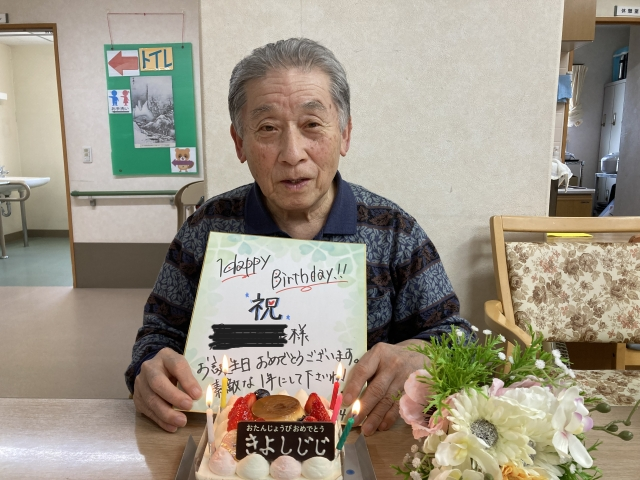 トイレ
休憩室
Happy
Birthday!!
祝
様
お誕生日おめでとうございます。
素敵な1年にして下さいね
おたんじょうびおめでとう
きよしじじ